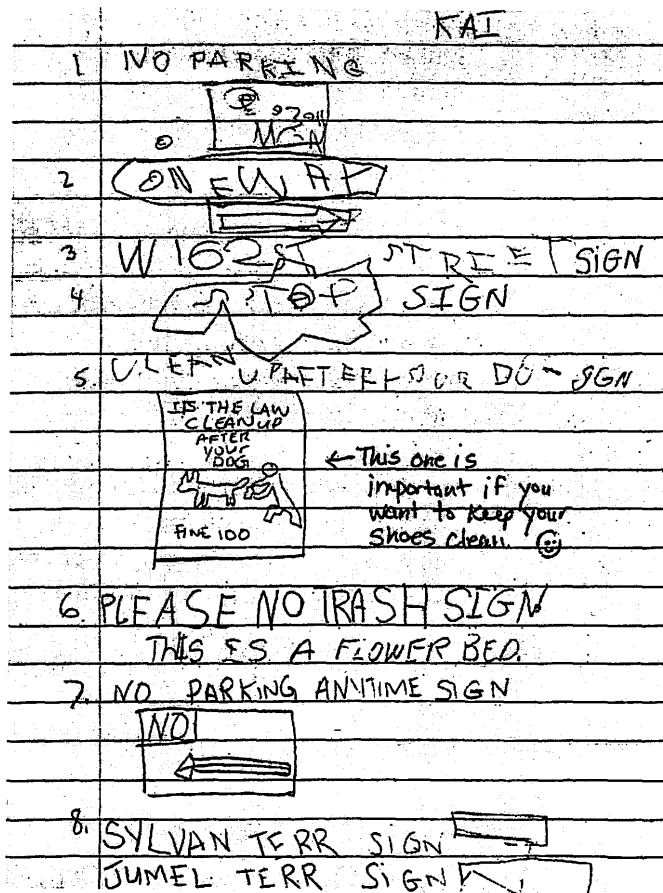 KAI
1 NO PARKING
2 ONE WAY
3 W 162 ST STREET SIGN
4 STOP SIGN
5. CLEAN UP AFTER YOUR DO SGN
IT'S THE LAW
CLEAN UP
AFTER
YOUR
DOG
FINE 100
← This one is
important if you
want to keep your
shoes clean. ☺
6. PLEASE NO TRASH SIGN
THIS IS A FLOWER BED.
7. NO PARKING ANYTIME SIGN
NO
8. SYLVAN TERR SIGN
JUMEL TERR SIGN